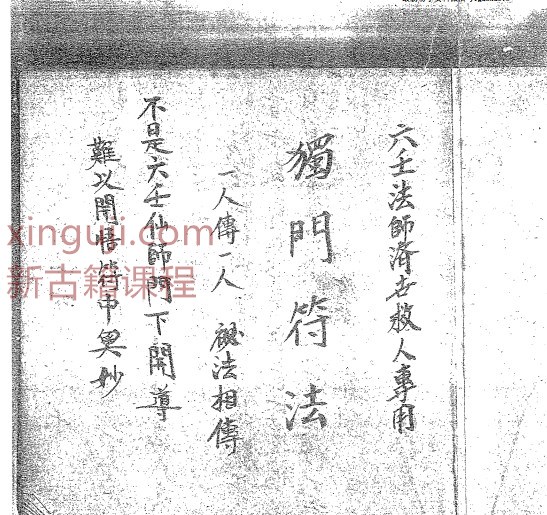 六壬法師济世救人專用
獨門符法
一人傳一人 秘法相傳
不是六壬仙師門下開導
難以開悟符中奧妙
xinguji.com
新古籍课程